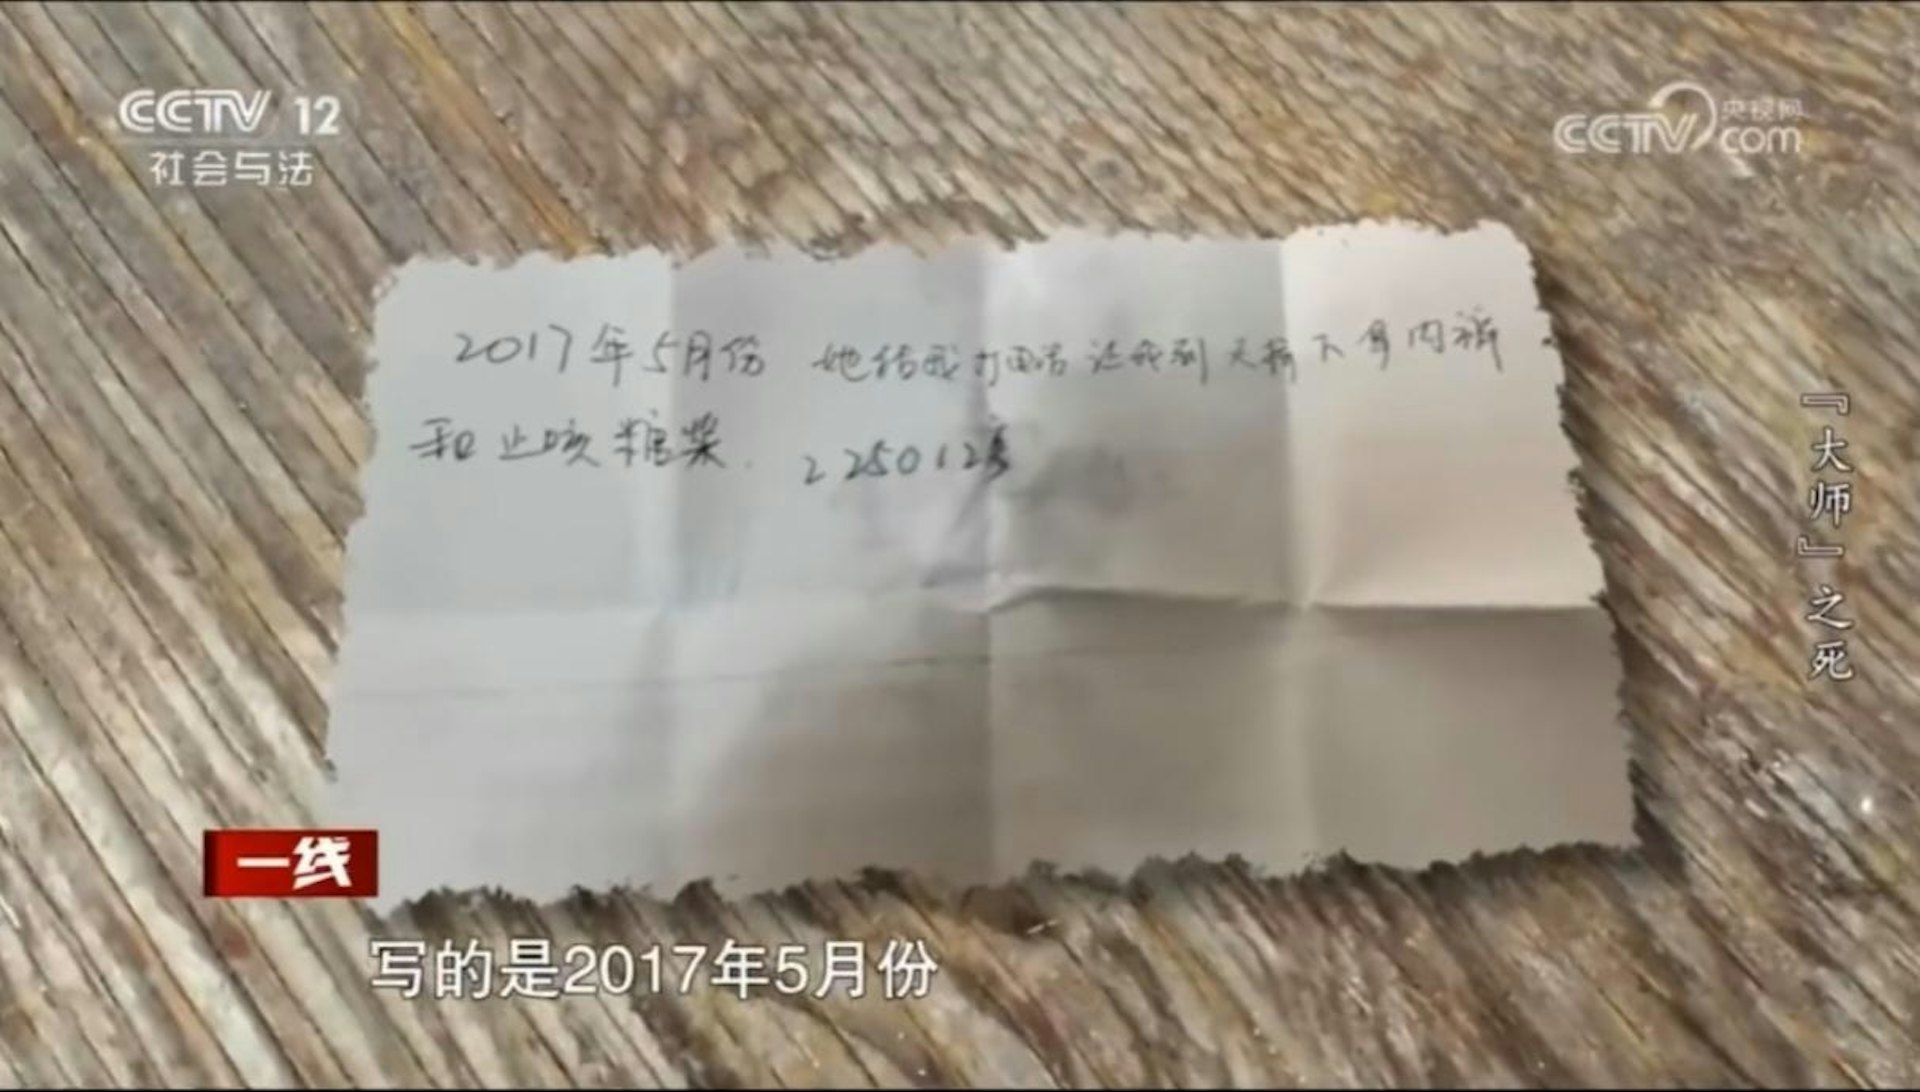 CCTV 12
社会与法
央视网
CCTV com
2017年5月份 她给我打电话 让我到天桥下拿内裤
和止咳糖浆. 225012
『大师』之死
一线
写的是2017年5月份